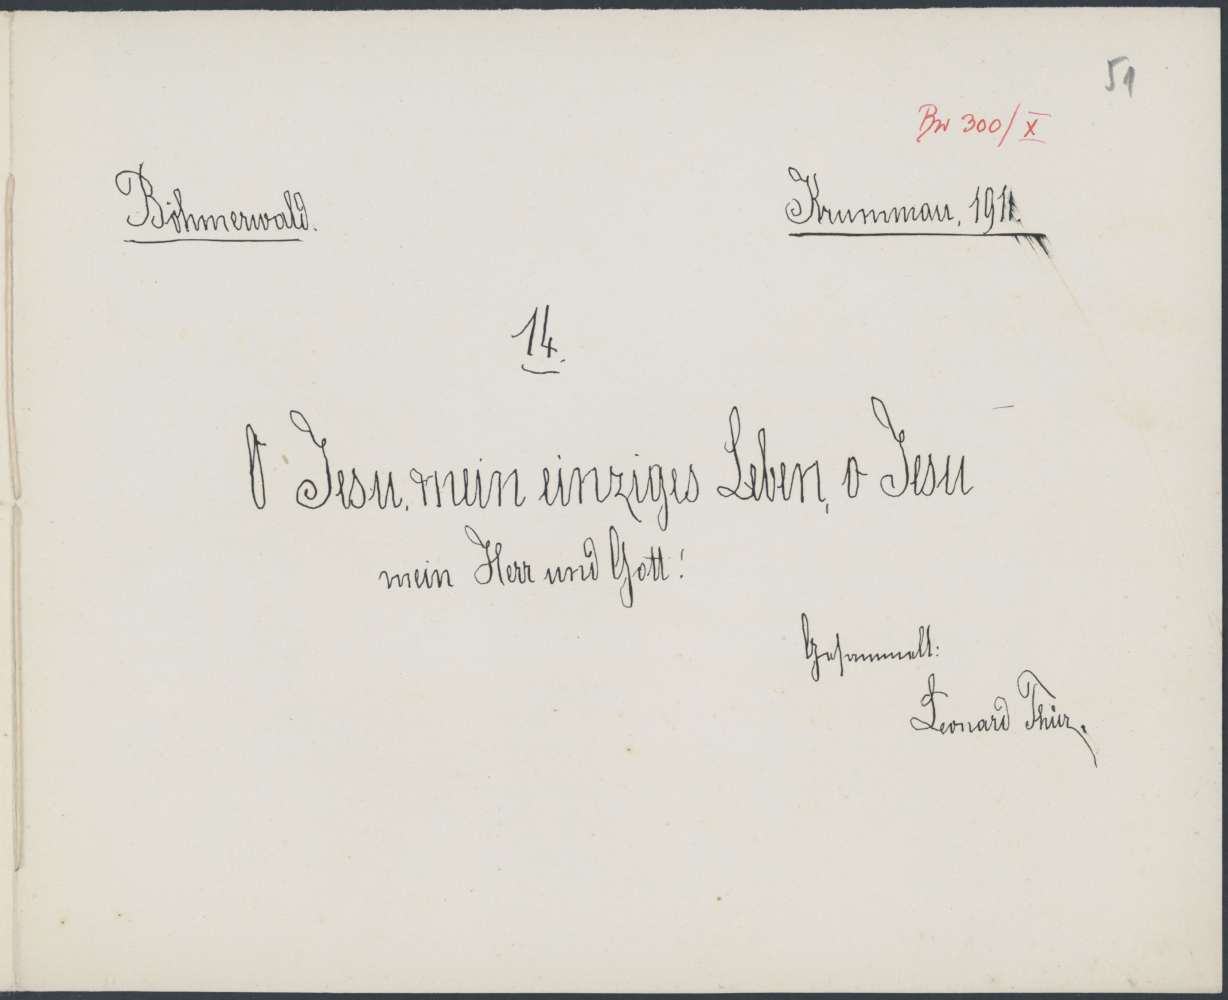 51
Bw 300/X
Böhmerwald. Krummau, 1911.
14.
O Jesu, mein einziges Leben, o Jesu
mein Herr und Gott!
Gesammelt:
Leonard Thür.